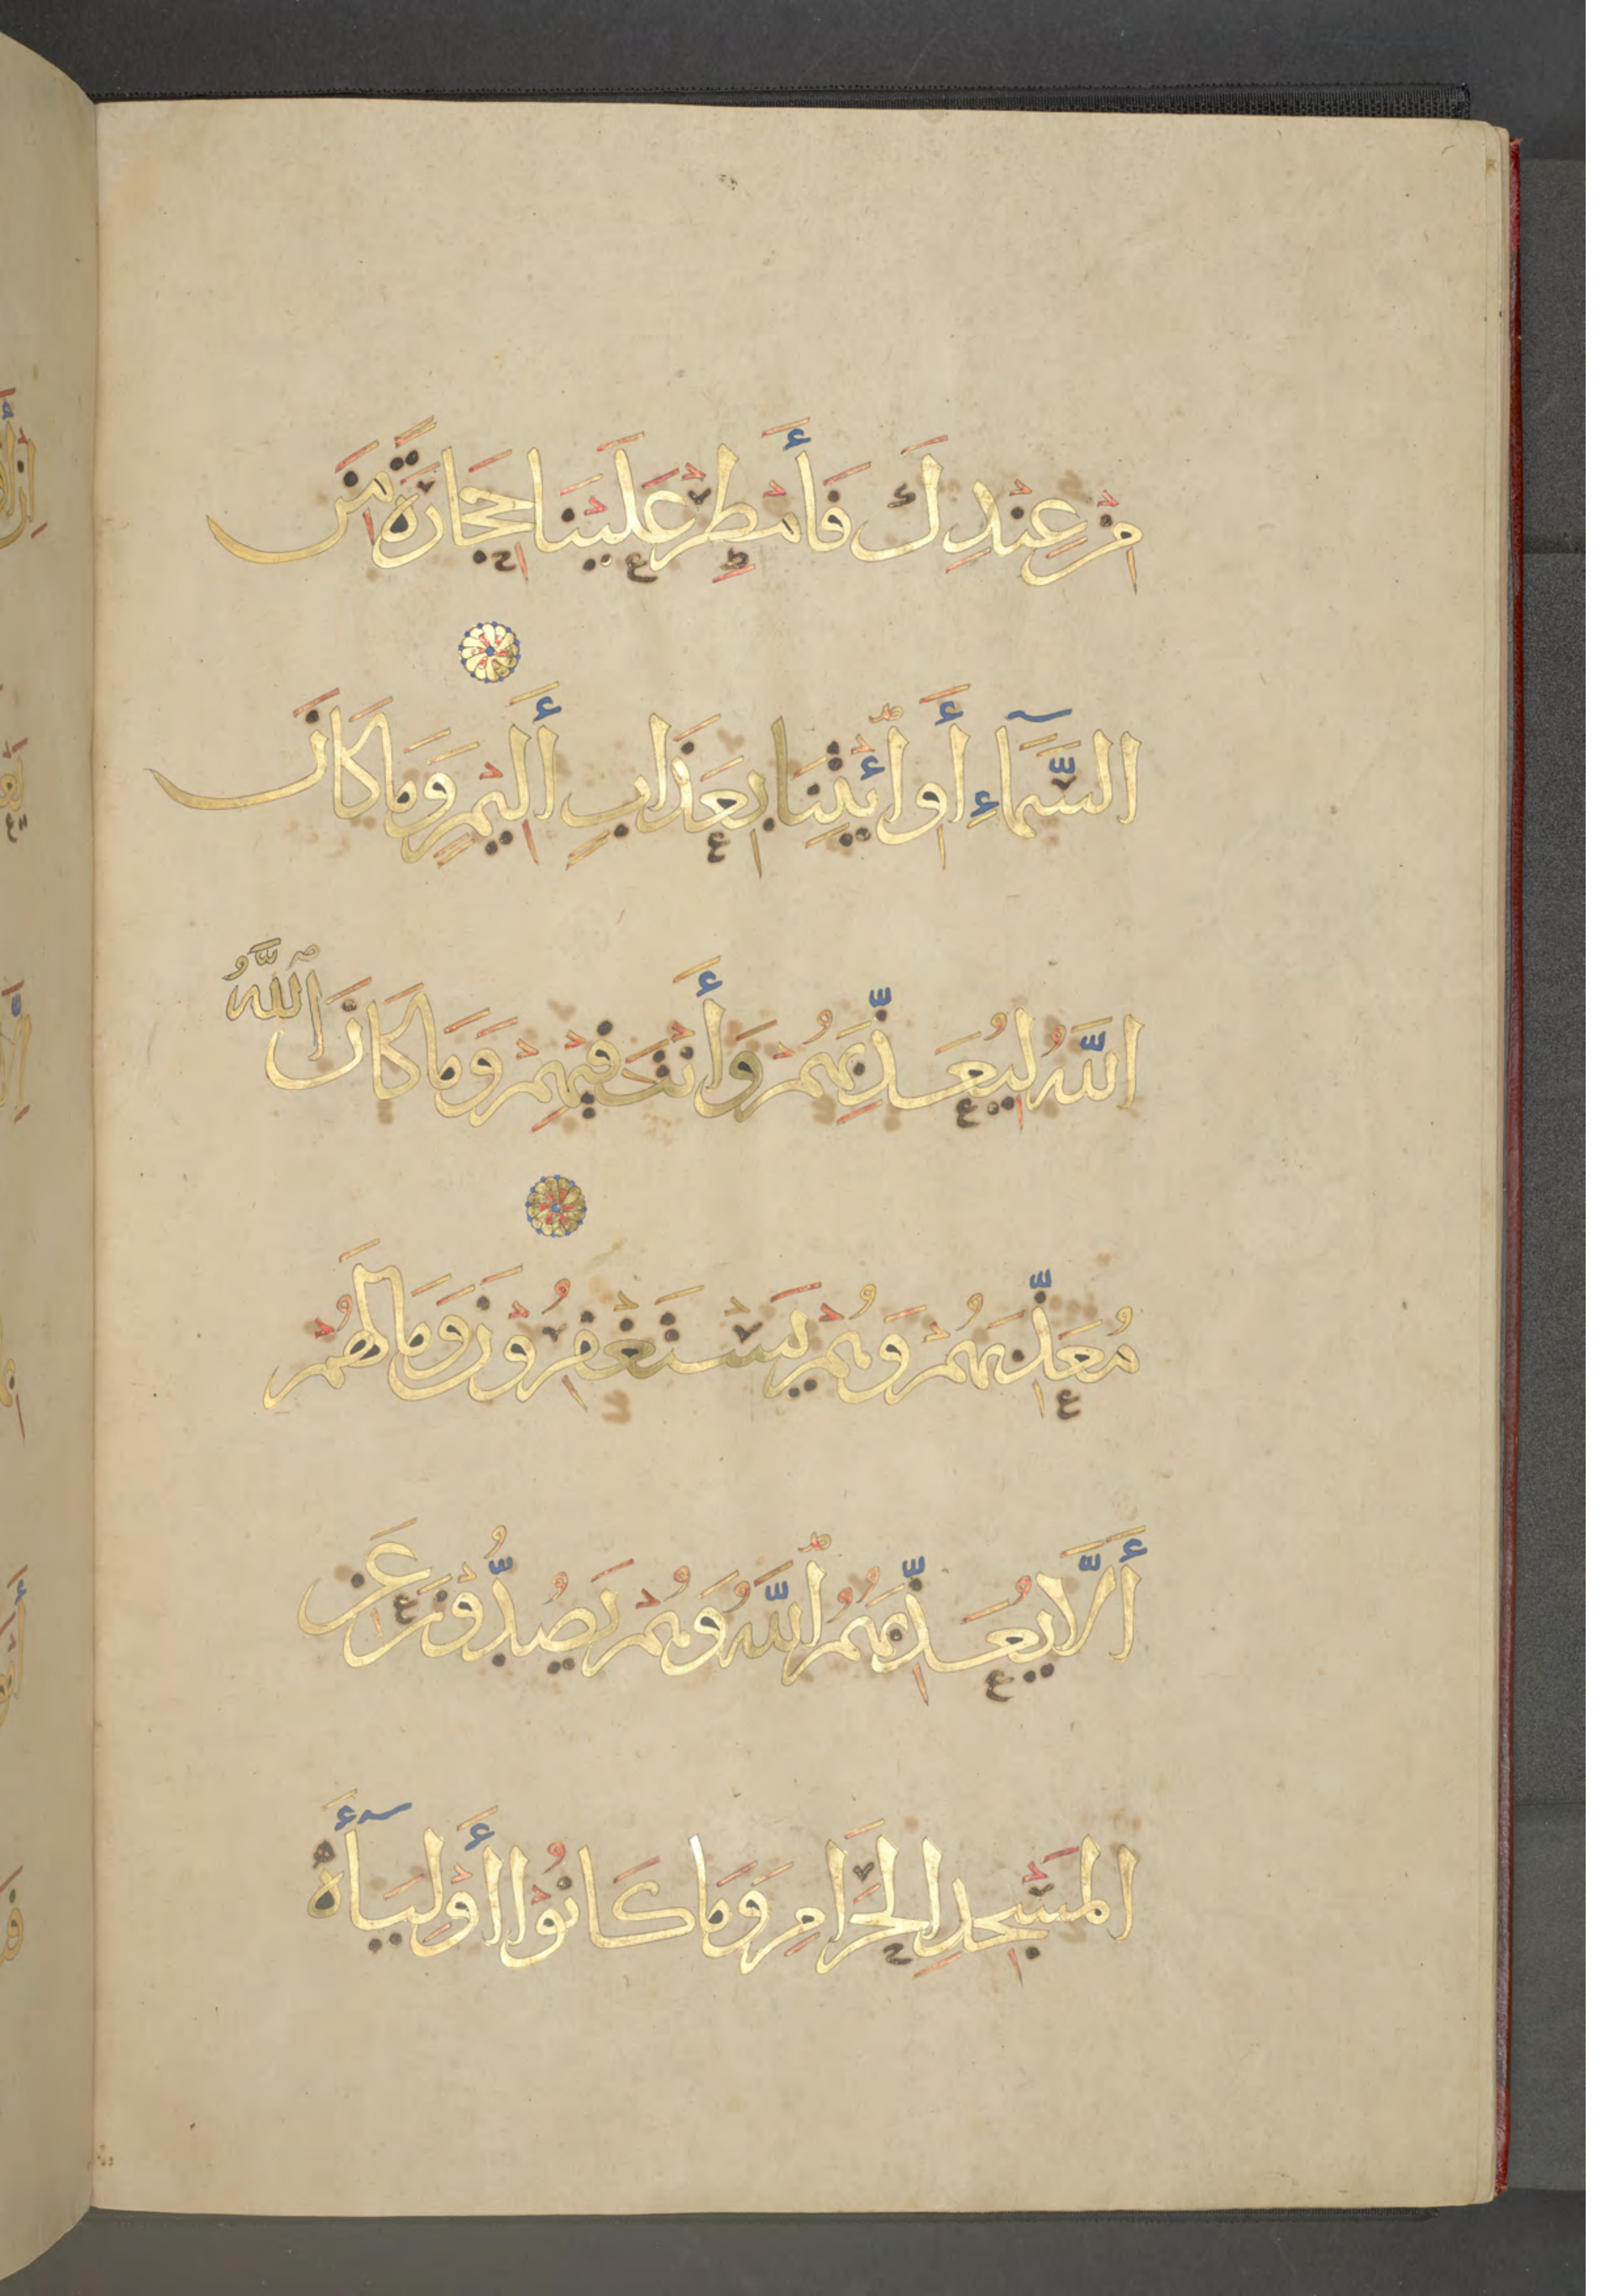 مِنْ عِنْدِكَ فَأَمْطِرْ عَلَيْنَا حِجَارَةً مِنَ
السَّمَآءِ أَوِ ائْتِنَا بِعَذَابٍ أَلِيْمٍ وَمَا كَانَ
اللَّهُ لِيُعَذِّبَهُمْ وَأَنْتَ فِيْهِمْ وَمَا كَانَ اللَّهُ
مُعَذِّبَهُمْ وَهُمْ يَسْتَغْفِرُوْنَ وَمَا لَهُمْ
أَلَّا يُعَذِّبَهُمُ اللَّهُ وَهُمْ يَصُدُّوْنَ عَنِ
الْمَسْجِدِ الْحَرَامِ وَمَا كَانُوْا أَوْلِيَآءَهُ